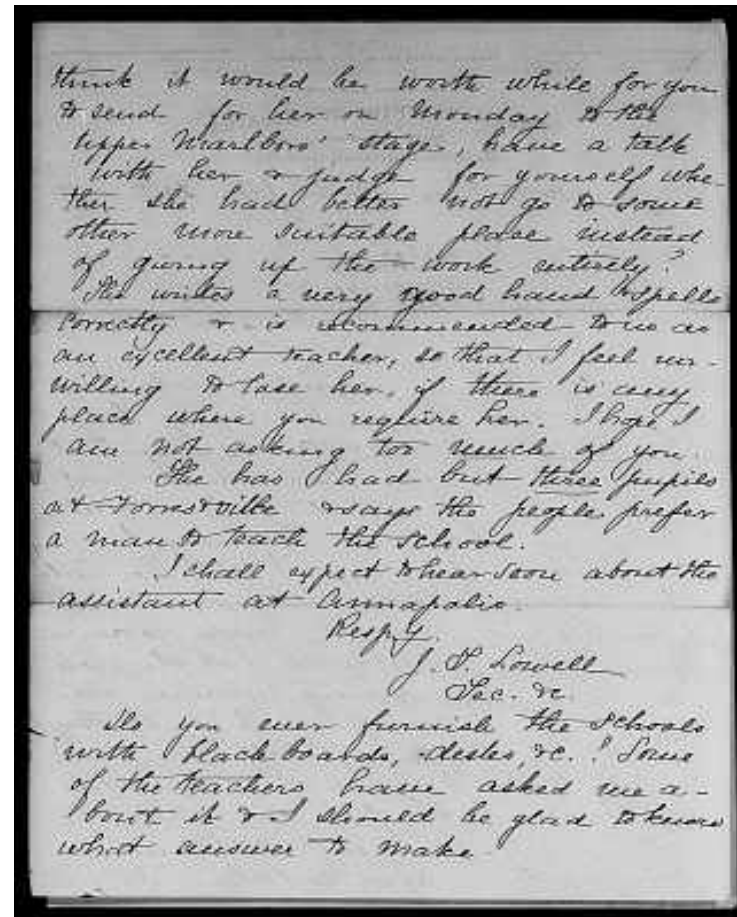 think it would be worth while for you
to send for her on Monday to the
Upper Marlboro' stage, have a talk
with her & judge for yourself whe-
ther she had better not go to some
other more suitable place instead
of giving up the work entirely?
She writes a very good hand & spells
correctly & is recommended to us as
an excellent teacher, so that I feel un-
willing to lose her, if there is any
place where you require her. I hope I
am not asking too much of you.
She has had but three pupils
at Forrestville & says the people prefer
a man to teach the school.
I shall expect to hear soon about the
assistant at Annapolis.
Resp'y.
Lowell
Sec. &c.
Do you ever furnish the schools
with black boards, desks, &c.? Some
of the teachers have asked me a-
bout it & I should be glad to know
what answer to make